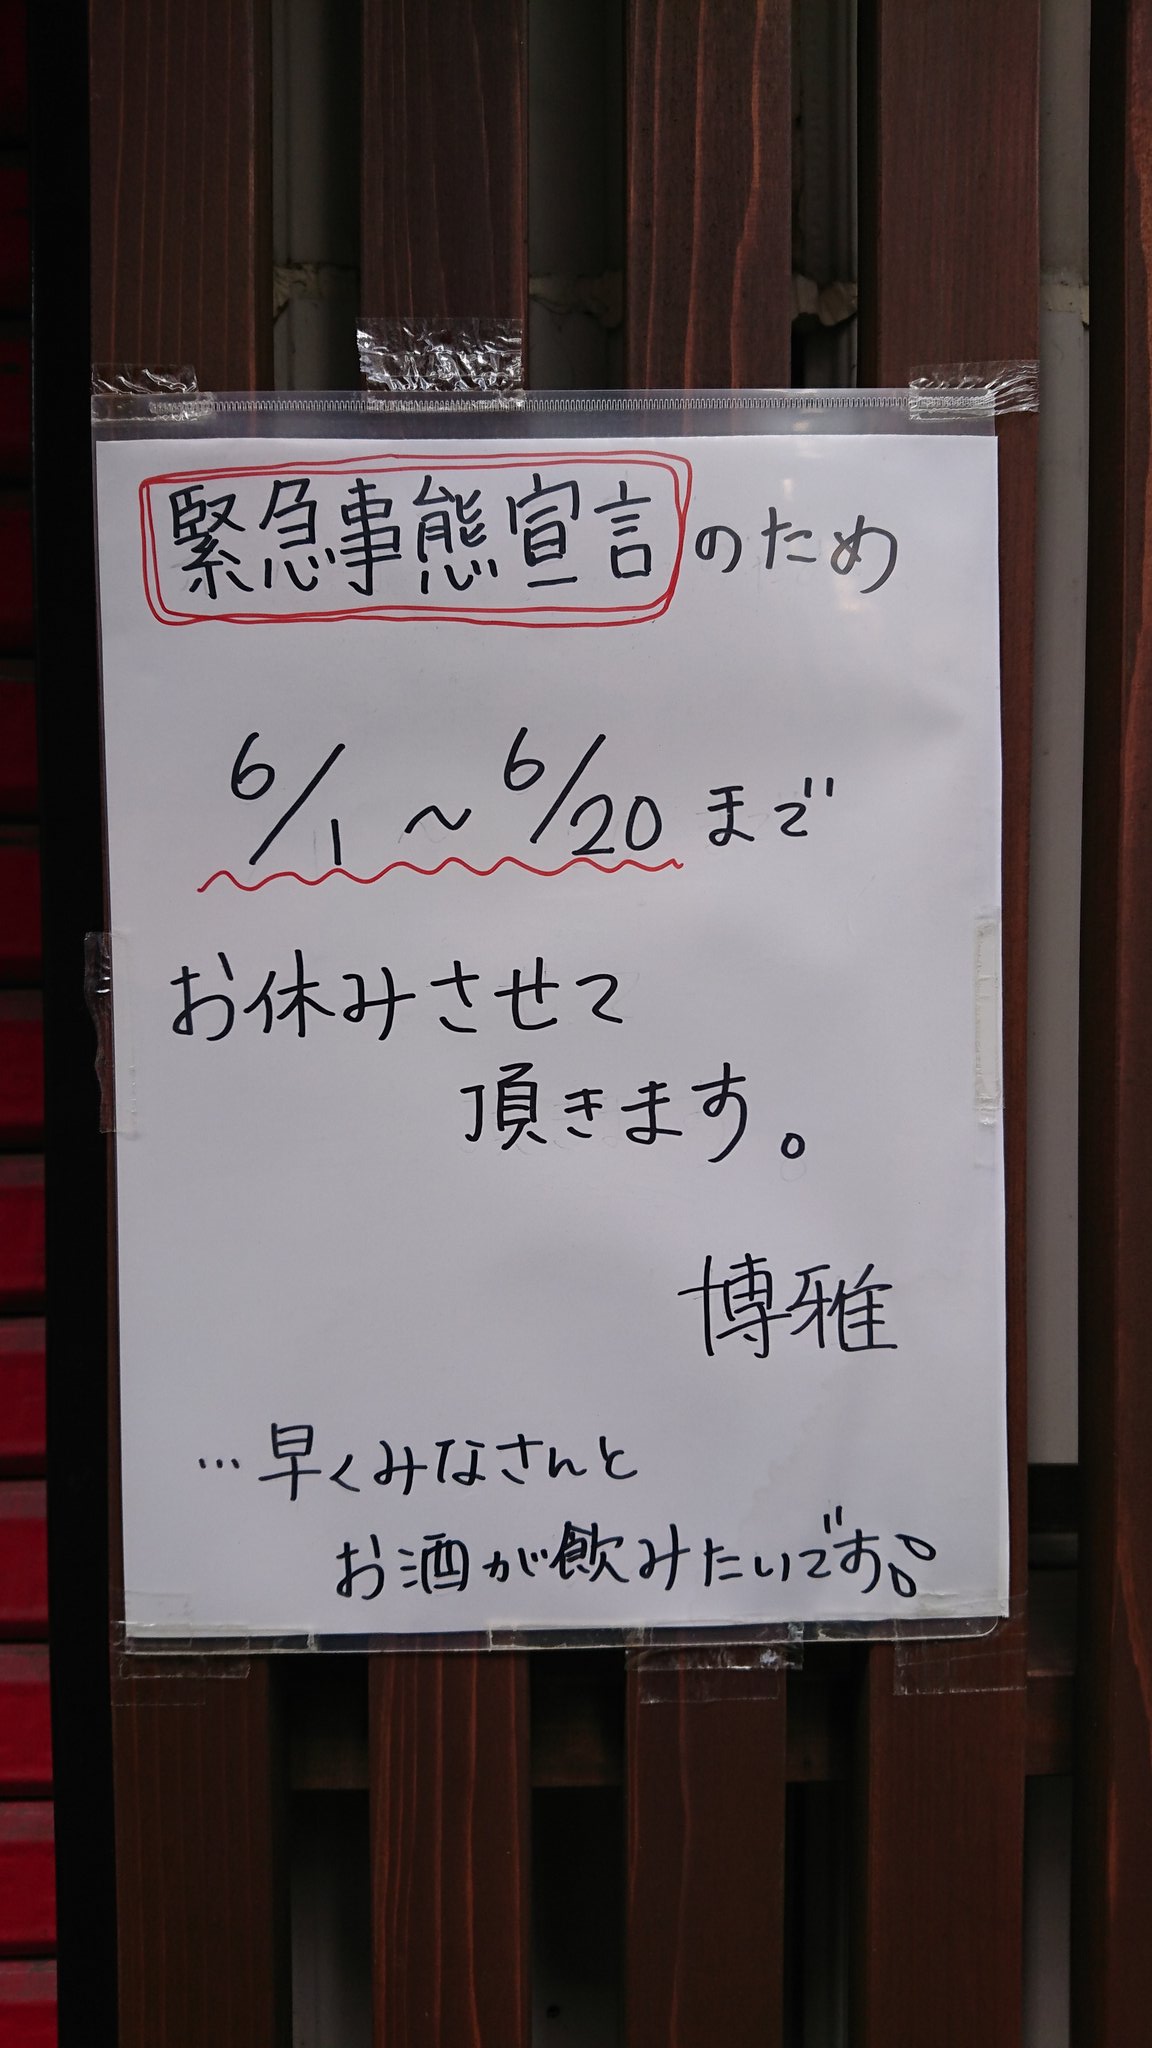 緊急事態宣言のため
6/1～6/20まで
お休みさせて
頂きます。
博雅
…早くみなさんと
お酒が飲みたいです。